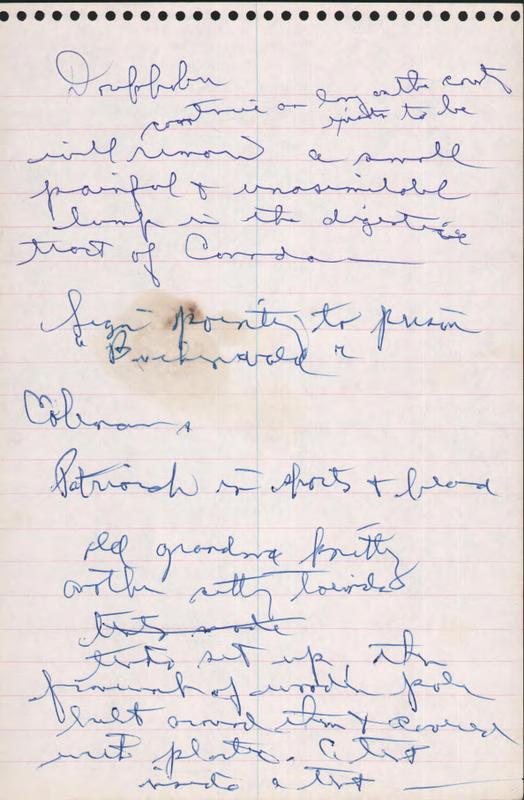 Doukhobor
continue as long as the court
exists to be
will remain a small
painful & unassimilable
lump in the digestive
tract of Canada
Sign pointing to prison
"Buchenwald"
Coleman,
Patriarch in shorts & beard
old grandma knitting
another
tents made
tents set up, then
framework of wooden pole
built around them & covered
with plastic. A tent
inside a tent